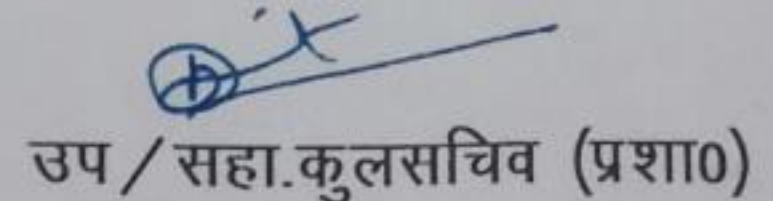 उप/सहा.कुलसचिव (प्रशा0)